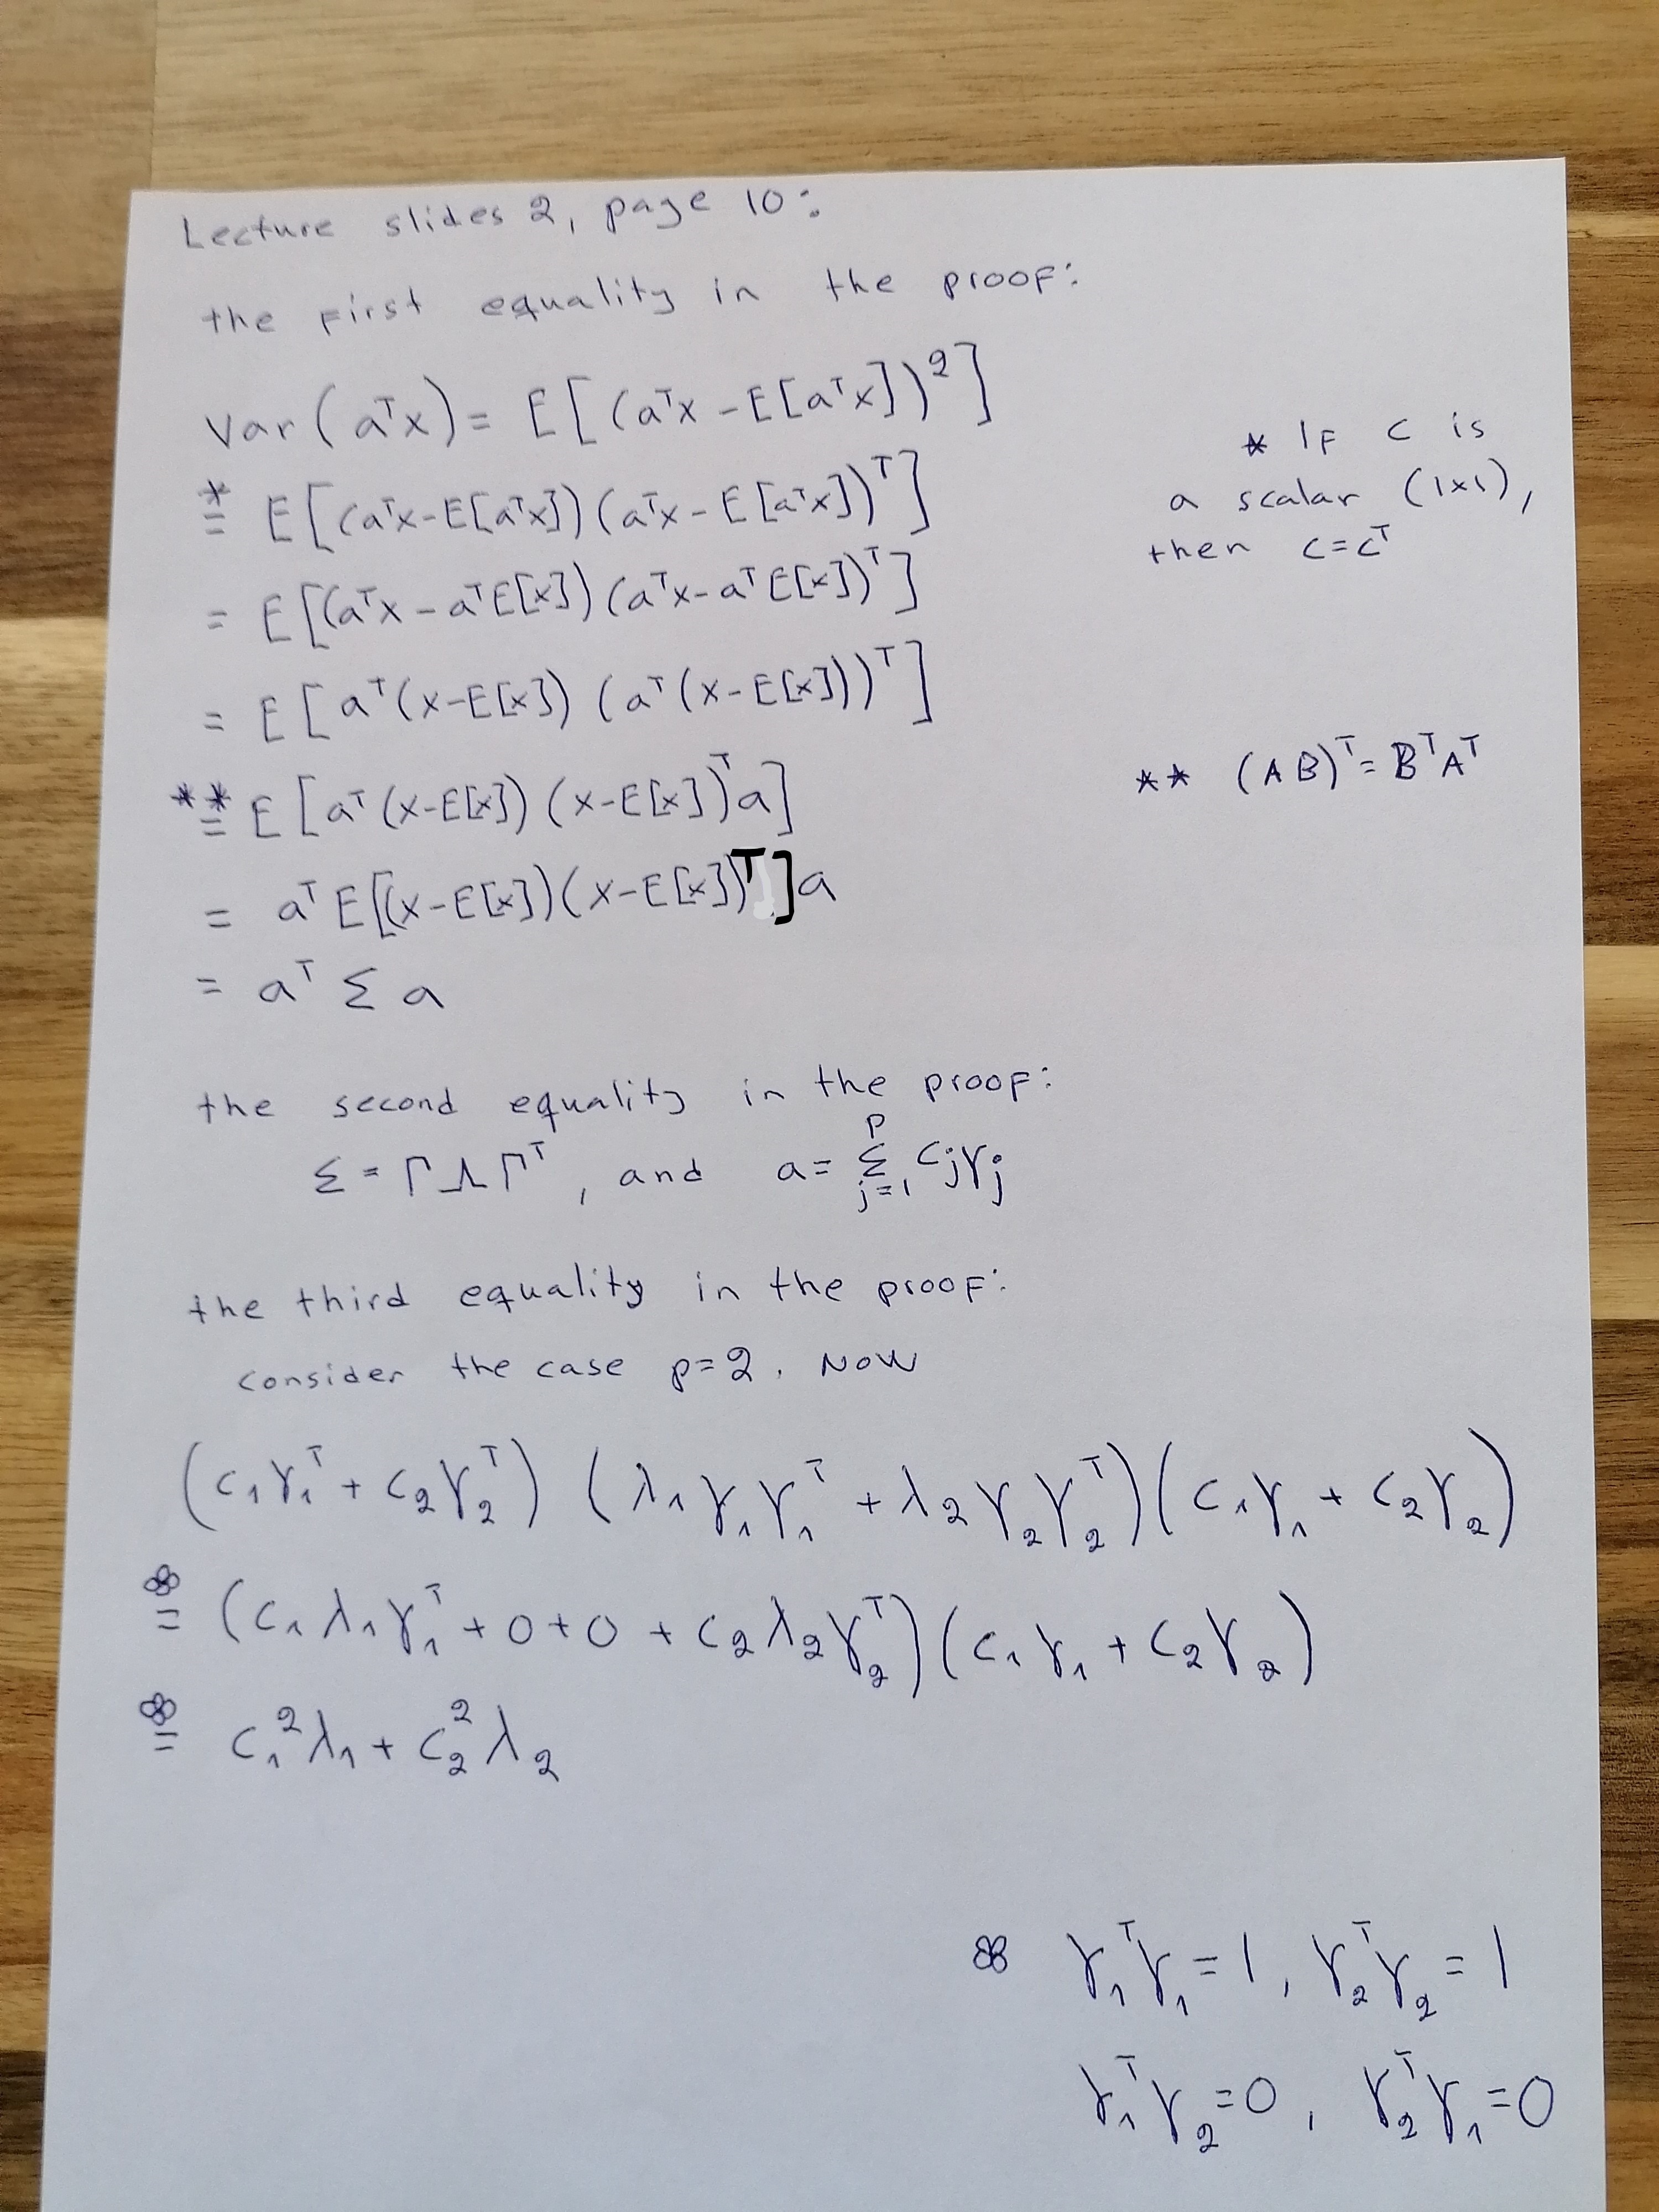 Lecture slides 2, page 10:
the first equality in the proof:
Var(aᵀx) = E[(aᵀx - E[aᵀx])²]
* If c is
*= E[(aᵀx - E[aᵀx])(aᵀx - E[aᵀx])ᵀ]
a scalar (1x1),
then c = cᵀ
= E[(aᵀx - aᵀE[x])(aᵀx - aᵀE[x])ᵀ]
= E[aᵀ(x - E[x])(aᵀ(x - E[x]))ᵀ]
**= E[aᵀ(x - E[x])(x - E[x])ᵀa]
** (AB)ᵀ = BᵀAᵀ
= aᵀE[(x - E[x])(x - E[x])ᵀ]a
= aᵀ Σ a
the second equality in the proof:
Σ = ΓΛΓᵀ, and a = Σ_{j=1}^{p} cⱼγⱼ
the third equality in the proof:
consider the case p=2. Now
(c₁γ₁ᵀ + c₂γ₂ᵀ)(λ₁γ₁γ₁ᵀ + λ₂γ₂γ₂ᵀ)(c₁γ₁ + c₂γ₂)
ꕤ= (c₁λ₁γ₁ᵀ + 0 + 0 + c₂λ₂γ₂ᵀ)(c₁γ₁ + c₂γ₂)
ꕤ= c₁²λ₁ + c₂²λ₂
ꕤ γ₁ᵀγ₁ = 1, γ₂ᵀγ₂ = 1
γ₁ᵀγ₂ = 0, γ₂ᵀγ₁ = 0